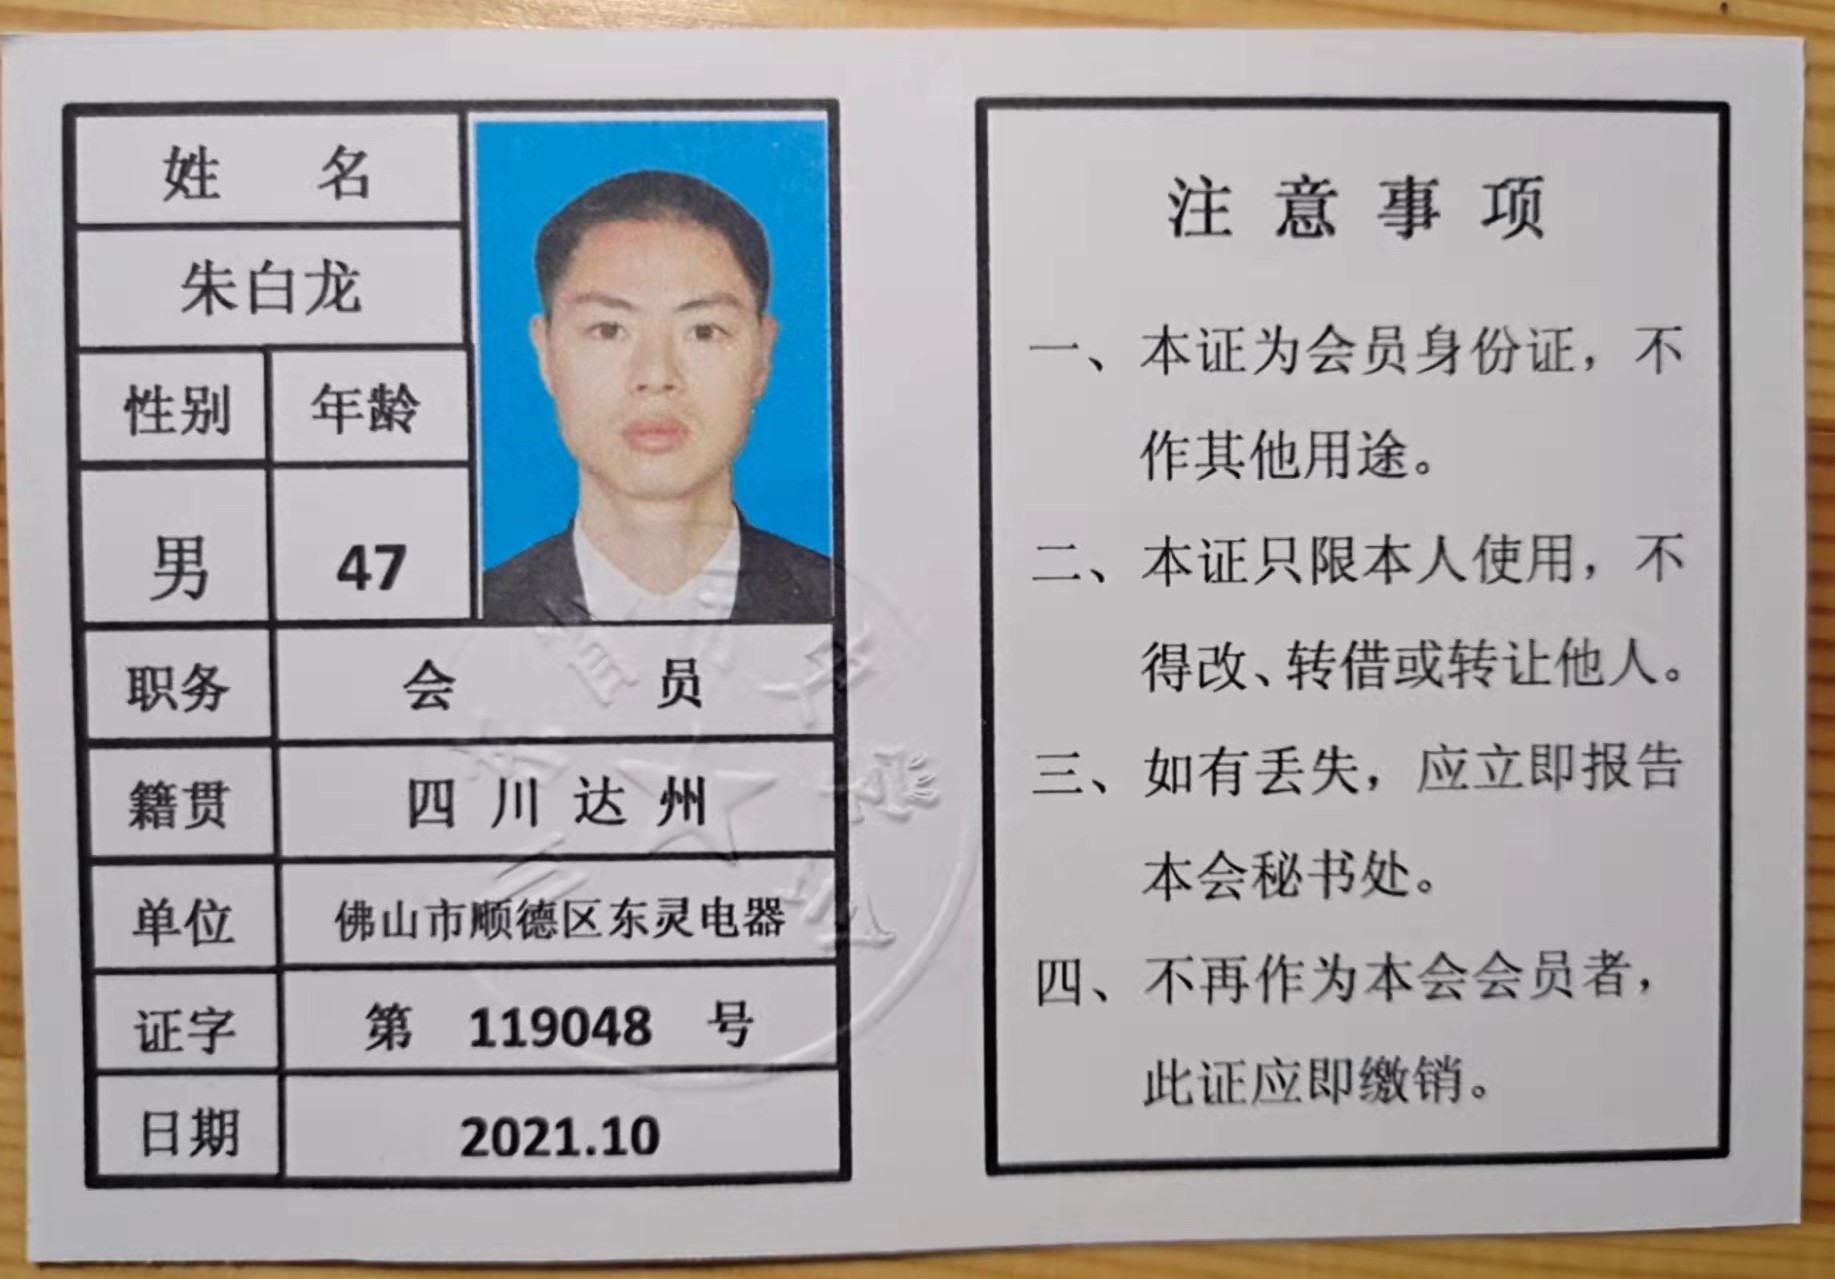 姓 名
朱白龙
性别 年龄
男 47
职务 会 员
籍贯 四川达州
单位 佛山市顺德区东灵电器
证字 第 119048 号
日期 2021.10
注意事项
一、本证为会员身份证，不
作其他用途。
二、本证只限本人使用，不
得改、转借或转让他人。
三、如有丢失，应立即报告
本会秘书处。
四、不再作为本会会员者，
此证应即缴销。